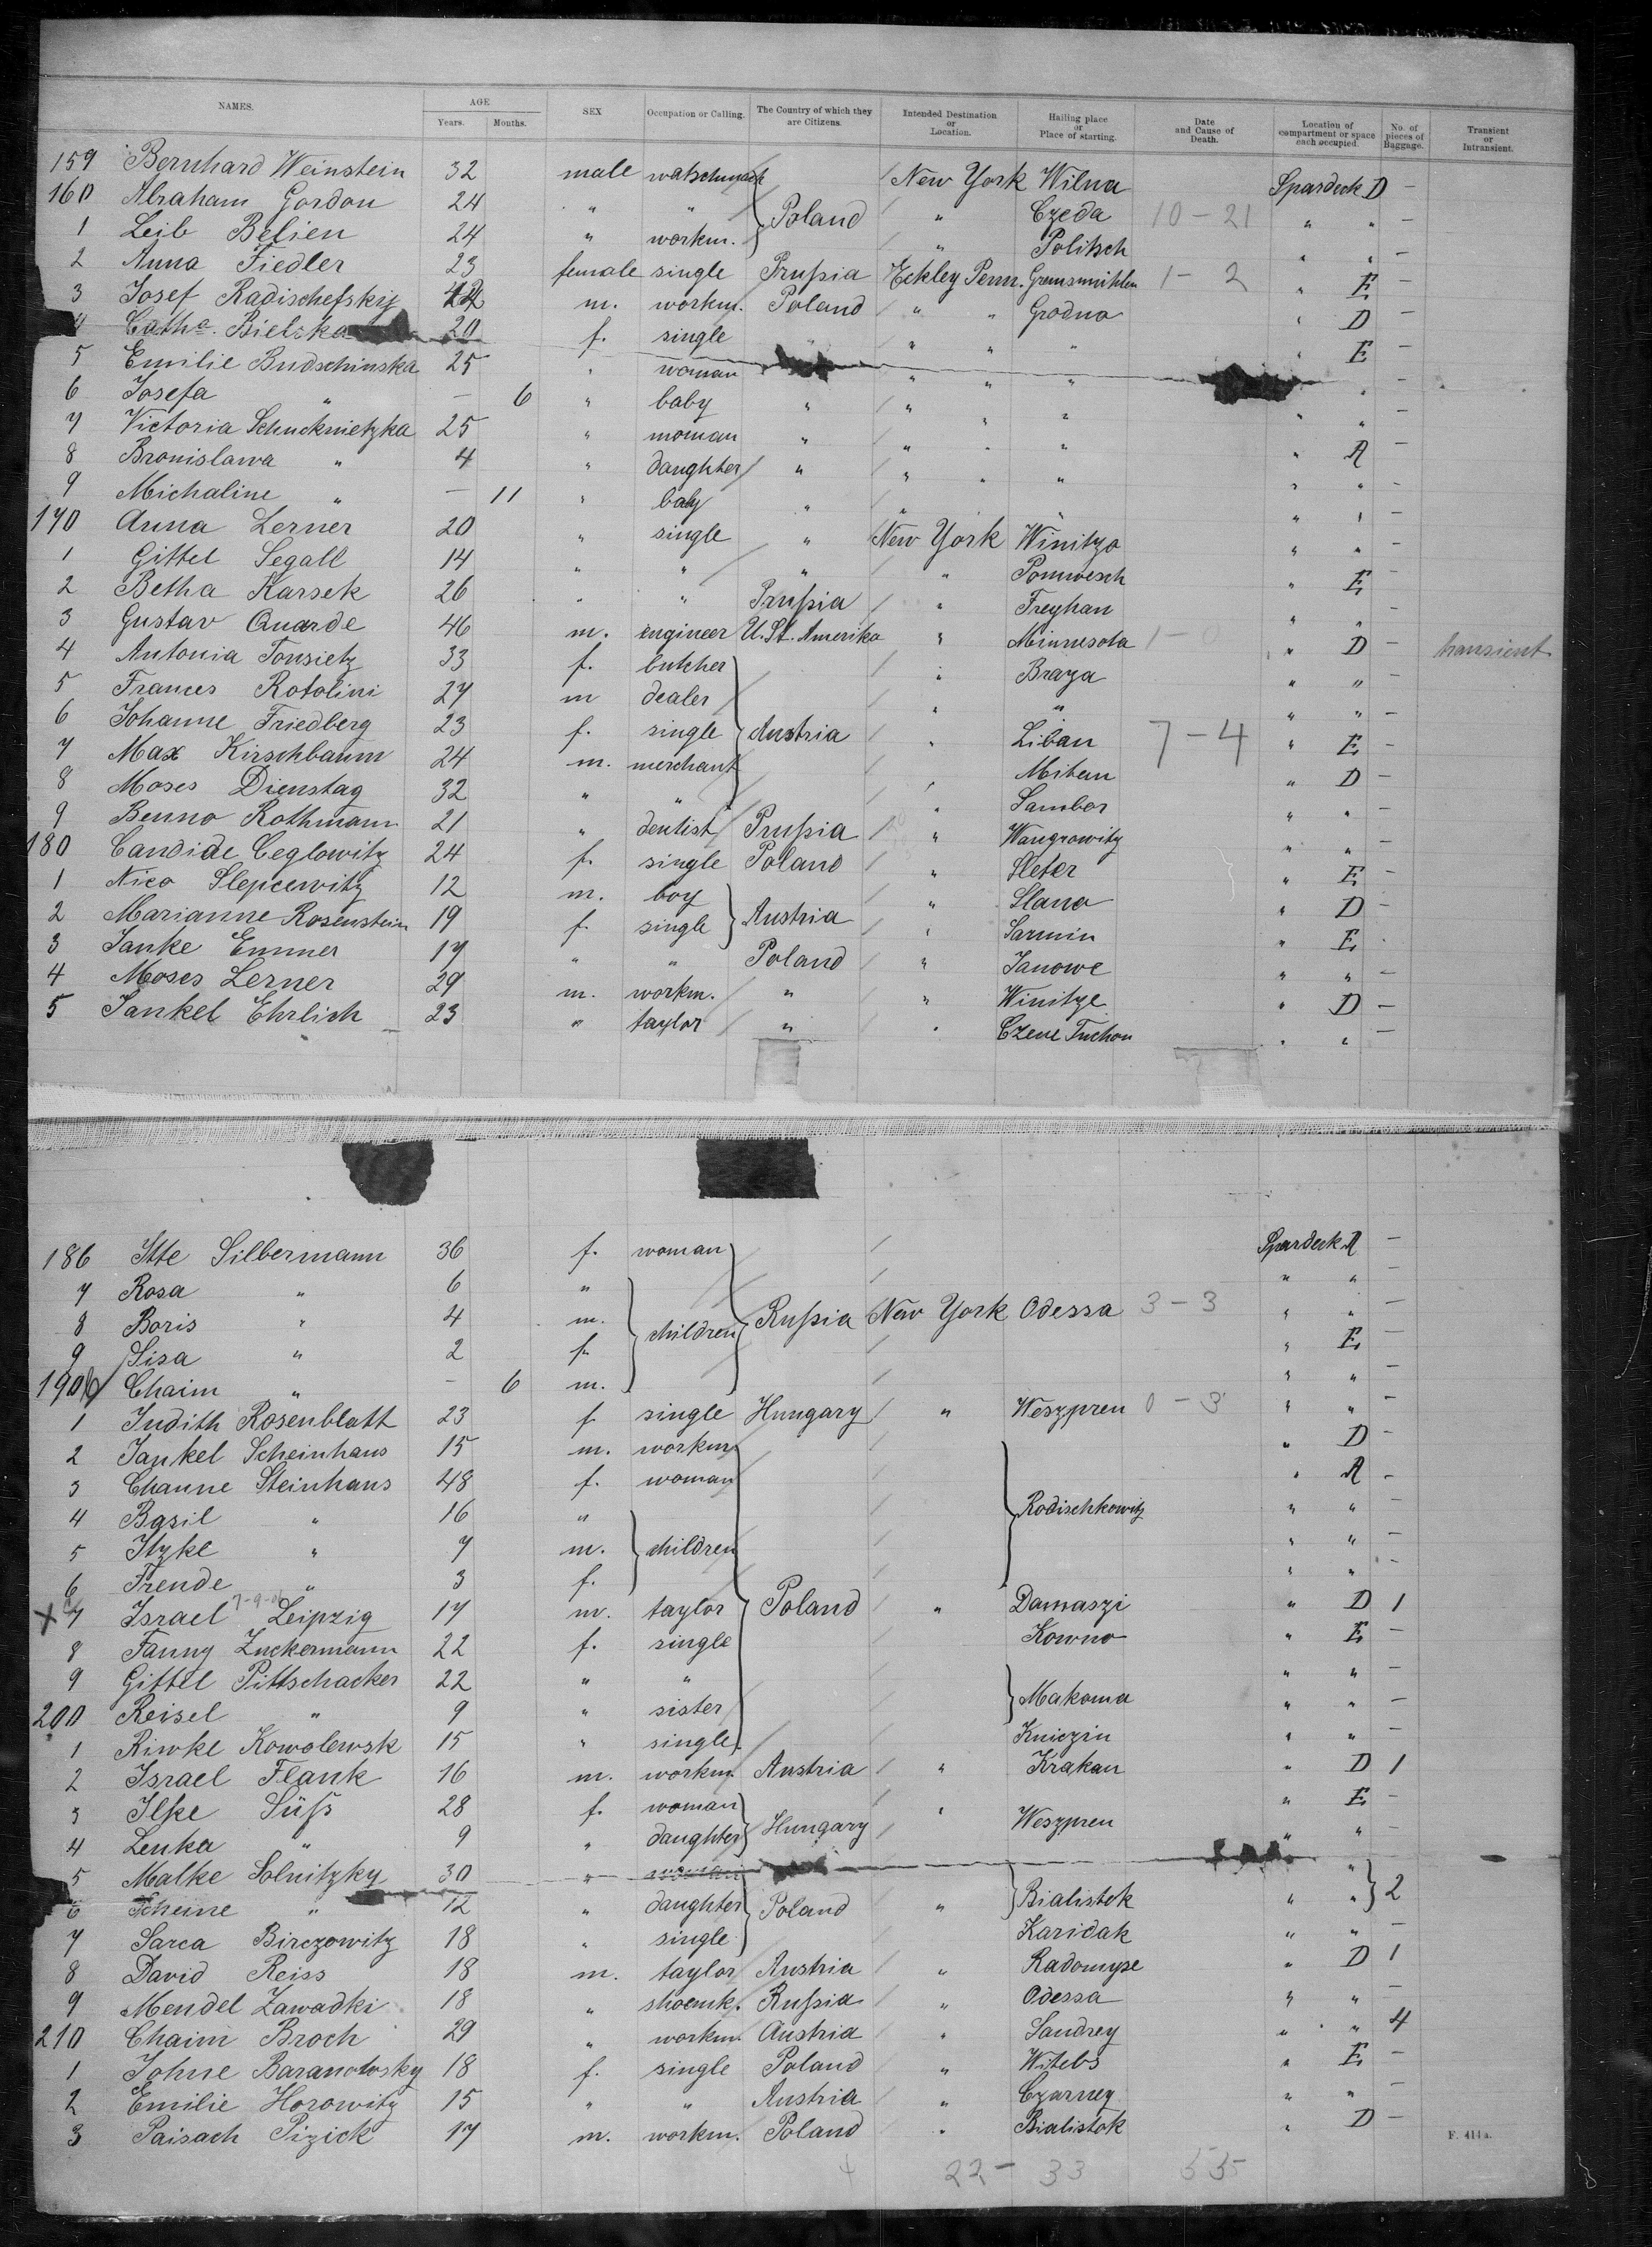 NAMES. AGE SEX Occupation or Calling. The Country of which they are Citizens. Intended Destination or Location. Hailing place or Place of starting. Date and Cause of Death. Location of compartment or space each occupied. No. of pieces of Baggage. Transient or Intransient.
Years. Months.
159 Bernhard Weinstein 32 male New York Wilna Spardeck D -
160 Abraham Gordon 24 " " Poland " Czeda 10-21 " " -
1 Leib Belien 24 " workm. " Politsch " " -
2 Anna Fiedler 23 female single Prußia Eckley Penn. 1-2 " E -
3 Josef Radischefskij m. workm. Poland " " Grodno " D -
4 Cath. Bielska 20 f. single " " " " " E -
5 Emilie Budschinska 25 " woman " " " -
6 Josefa " - 6 " baby " " " " " " -
7 Victoria Schucknietzka 25 " woman " " " " " A -
8 Bronislawa " 4 " daughter " " " " " " -
9 Michaline " - 11 " baby " " " " " -
170 Anna Lerner 20 " single " New York Winitzo " " -
1 Gittel Segall 14 " " " " Pomwesch " E -
2 Betha Karsek 26 " " Prußia " Freyhan " " -
3 Gustav Quarde 46 m. engineer U. St. Amerika " Minnesota 1-0 " D - transient
4 Antonia Tonsietz 33 f. butcher " Braza " " -
5 Frances Rotolini 27 m dealer " " " " -
6 Johanne Friedberg 23 f. single Austria " Liban 7-4 " E -
7 Max Kirschbaum 24 m. merchant " Mitau " D -
8 Moses Dienstag 32 " " " Sambor " " -
9 Benno Rothmann 21 " dentist Prußia " Wangrowitz " " -
180 Candide Ceglowitz 24 f. single Poland " Sleter " E -
1 Nico Slepcewitz 12 m. boy " Slano " D -
2 Marianne Rosenstein 19 f. single Austria " Sarmin " E -
3 Janke Emmer 17 " " Poland " Janowe " " -
4 Moses Lerner 29 m. workm. " " Winitze " D -
5 Jankel Ehrlich 23 " taylor " " Czene Tuchon " " -
186 Itte Silbermann 36 f. woman Spardeck A -
7 Rosa " 6 " " " -
8 Boris " 4 m. children Rußia New York Odessa 3-3 " " -
9 Lisa " 2 f. " E -
190 Chaim " - 6 m. " " -
1 Judith Rosenblatt 23 f. single Hungary " Weszpren 0-3 " " -
2 Jankel Scheinhaus 15 m. workm. " D -
3 Channe Steinhaus 48 f. woman " A -
4 Basil " 16 " Rodischkowitz " " -
5 Itzke " 7 m. children " " -
6 Frende " 3 f. " " -
7 Israel Leipzig 17 m. taylor Poland " Damaszi " D 1
8 Fanny Zuckermann 22 f. single Kowno " E -
9 Gittel Pittschacker 22 " " " " -
200 Reisel " 9 " sister Makoma " " -
1 Riwke Kowolewsk 15 " single Kniczin " " -
2 Israel Flank 16 m. workm. Austria " Krakau " D 1
3 Ilke Süß 28 f. woman " " E -
4 Lenka " 9 " daughter Hungary Weszpren " " -
5 Malke Solnitzky 30 " woman "
6 Scheine " 12 " daughter Poland " Bialistok " " 2
7 Sarca Birczowitz 18 " single Karidak " " -
8 David Reiss 18 m. taylor Austria " Radomyse " D 1
9 Mendel Zawadki 18 " shoemk. Rußia " Odessa " " -
210 Chaim Broch 29 " workm. Austria " Sandrey " " 4
1 Johne Baranowsky 18 f. single Poland " Witebs " E -
2 Emilie Horowitz 15 " " Austria " Czarney " " -
3 Paisach Pizick 17 m. workm. Poland " Bialistok " D -
F. 414a.
22 - 33 55